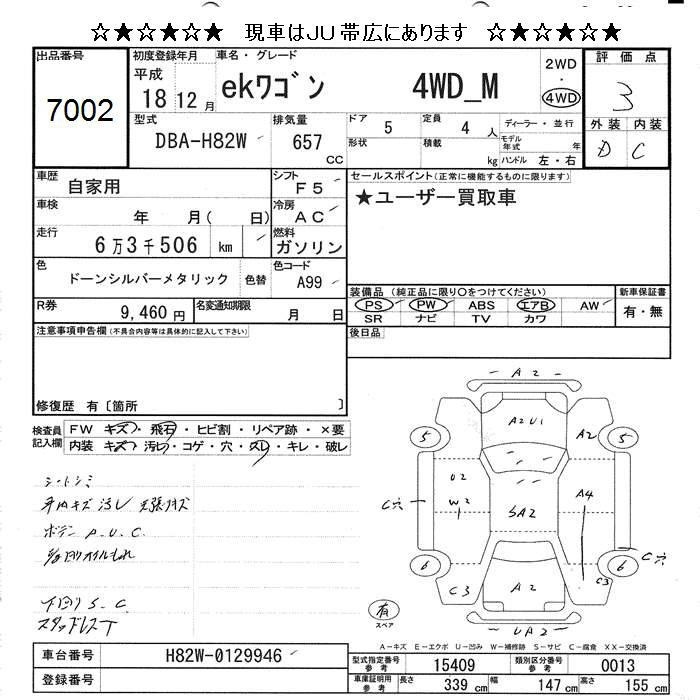 ☆★☆★☆★ 現車はJU帯広にあります ☆★☆★☆★
出品番号 7002
初度登録年月 平成 18 12月
車名・グレード ekワゴン 4WD_M
2WD ・ 4WD
評価点 3
外装 D 内装 C
型式 DBA-H82W
排気量 657 CC
ドア 5 定員 4 人
形状 積載 kg
ディーラー・並行
モデル年式 年
ハンドル 左・右
車歴 自家用
シフト F5
車検 年 月( 日)
冷房 AC
走行 6万3千506 km
燃料 ガソリン
色 ドーンシルバーメタリック 色替
色コード A99
R券 9,460円
名変通知期限 月 日
セールスポイント(正常に機能するものに限ります)
★ユーザー買取車
装備品(純正品に限り○をつけてください)
PS PW ABS エアB AW
SR ナビ TV カワ
新車保証書 有・無
後日品
注意事項申告欄(不具合内容等は具体的に記入して下さい)
修復歴 有〔箇所 〕
検査員記入欄
FW キズ・飛石・ヒビ割・リペア跡・×要
内装 キズ・汚レ・コゲ・穴・スレ・キレ・破レ
シートシミ
内キズ汚レ
ボデー A.U.C.
下回りS.C
スタッドレスT
A2
A2U1
A2
5
5
U2
W2
1
SA2
A4
C穴
C穴
6
6
C3
A2
C3
UA2
有
スペア
A-キズ E-エクボ U-凹み W-補修跡 S-サビ C-腐食 XX-交換済
車台番号 H82W-0129946
登録番号
型式指定番号 参考 15409
類別区分番号 参考 0013
車庫証明用 参考 長さ 339 cm 幅 147 cm 高さ 155 cm